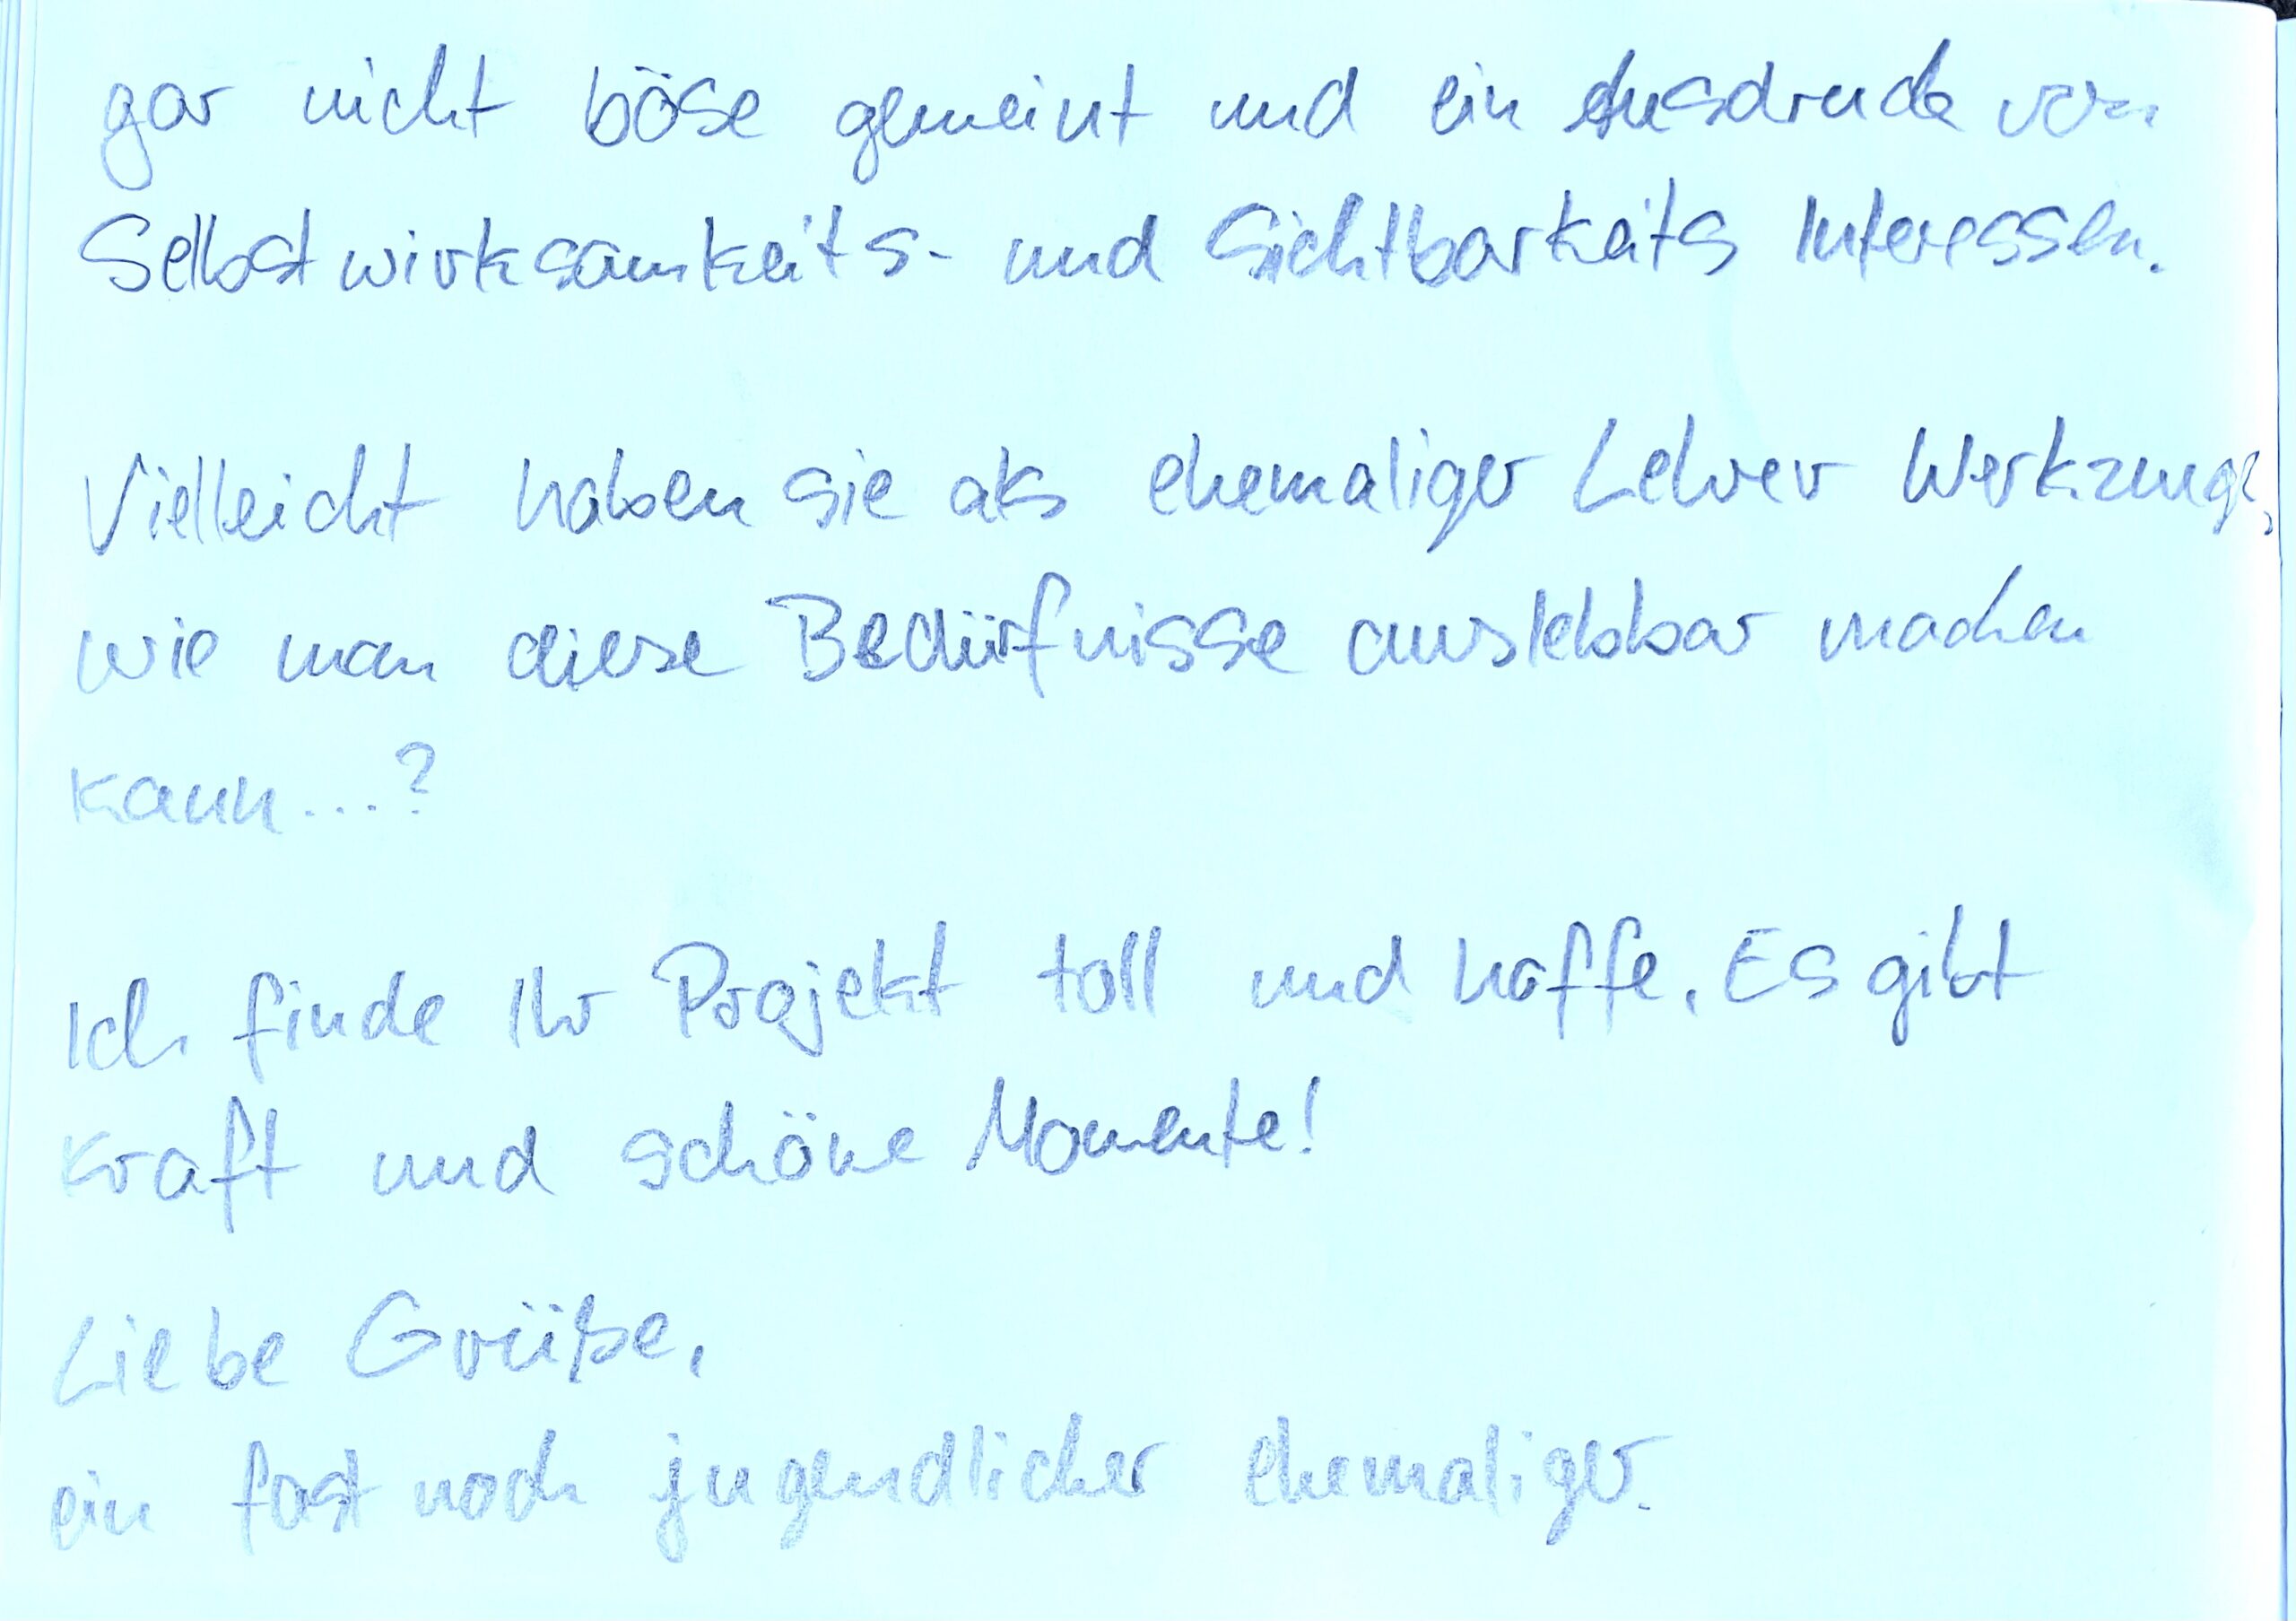 gar nicht böse gemeint und ein Ausdruck von
Selbstwirksamkeits- und Sichtbarkeits Interessen.
Vielleicht haben sie als ehemaliger Lehrer Werkzeuge,
wie man diese Bedürfnisse auslebbar machen
kann...?
Ich finde Ihr Projekt toll und hoffe, Es gibt
Kraft und schöne Momente!
Liebe Grüße,
ein fast noch jugendlicher ehemaliger.